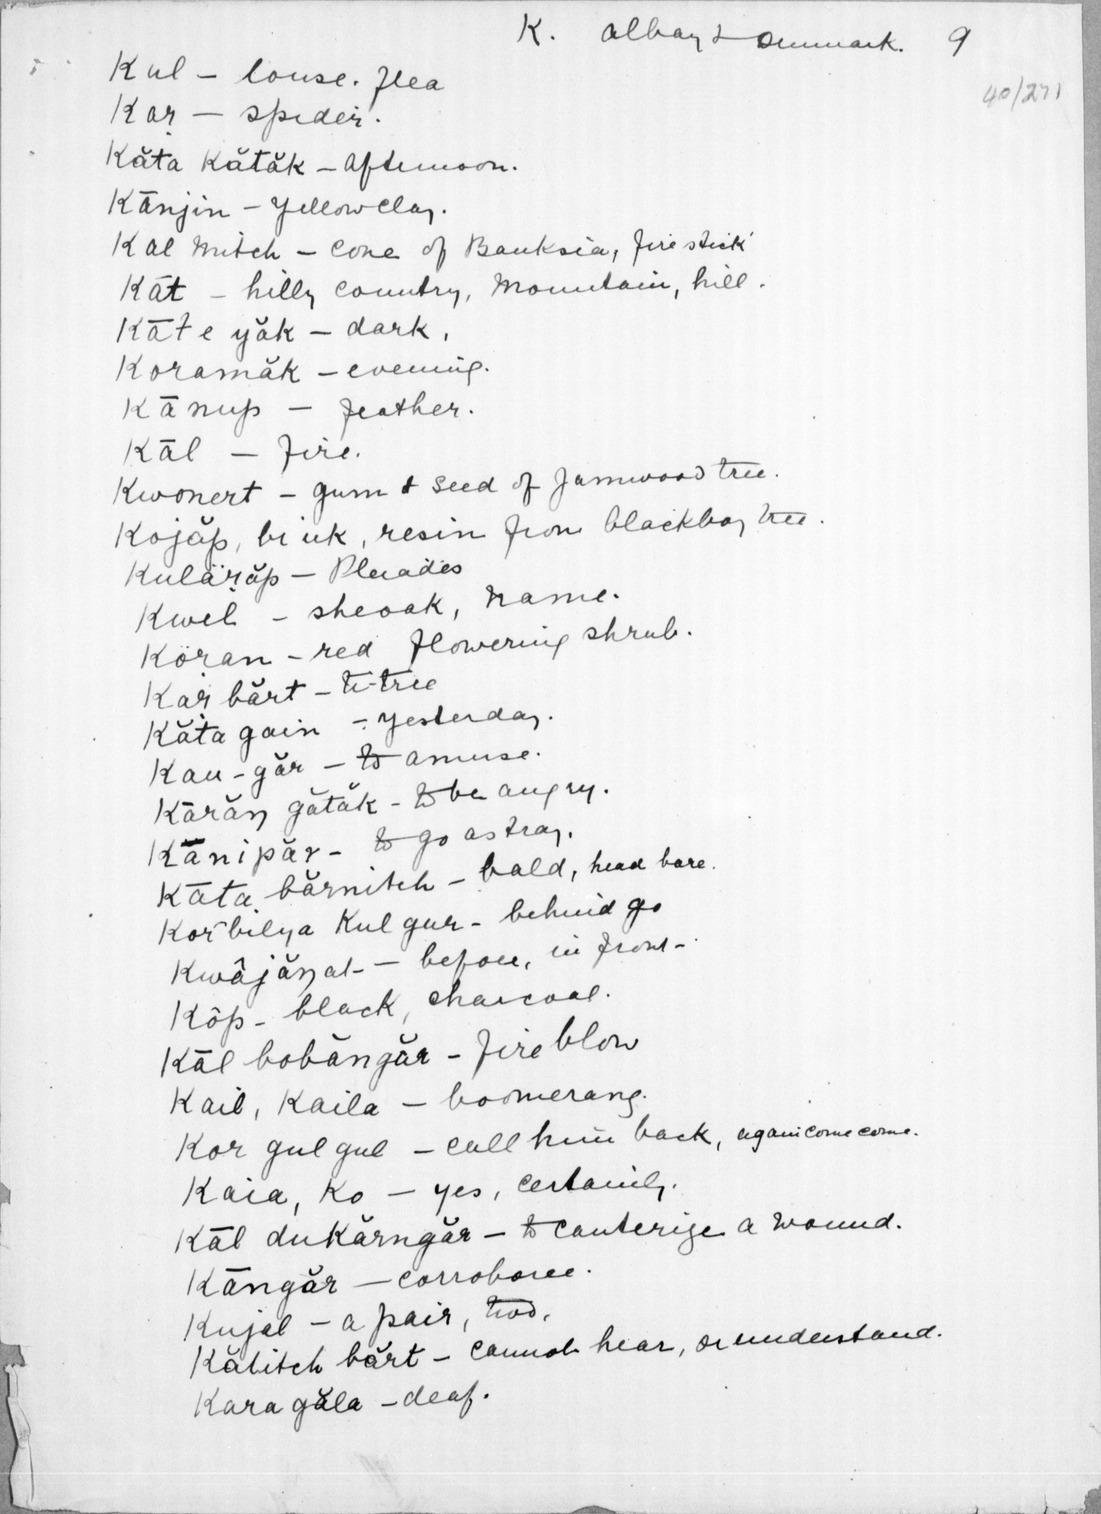 K. Albany & Denmark. 9
40/271
Kul – louse. flea
Kar – spider.
Kăta kătăk – afternoon.
Kānjin – yellow clay.
Kal mitch – cone of Banksia, fire stick
Kāt – hilly country, mountain, hill.
Kāt e yăk – dark,
Koramăk – evening.
Kānup – feather.
Kāl – fire.
Kwonert – gum & seed of Jamwood tree.
Kojăp, bi uk, resin from blackboy tree.
Kulărăp – Pleiades
Kwel – sheoak, name.
Köran – red flowering shrub.
Kar bărt – ti-tree
Kăta gain – yesterday.
Kau-găr – to amuse.
Kārăŋ gătăk – to be angry.
Kānipăr – to go astray.
Kāta bărnitch – bald, head bare.
Kor bilya kulgur – behind go
Kwâjăŋat – before, in front –
Kôp – black, charcoal.
Kāl bobăngăr – fire blow
Kail, Kaila – boomerang.
Kor gul gul – call him back, again come come.
Kaia, Ko – yes, certainly.
Kāl dukărngăr – to cauterize a wound.
Kāngăr – corroboree.
Kujal – a pair, two.
Kălitch bărt – cannot hear, or understand.
Kara găla – deaf.